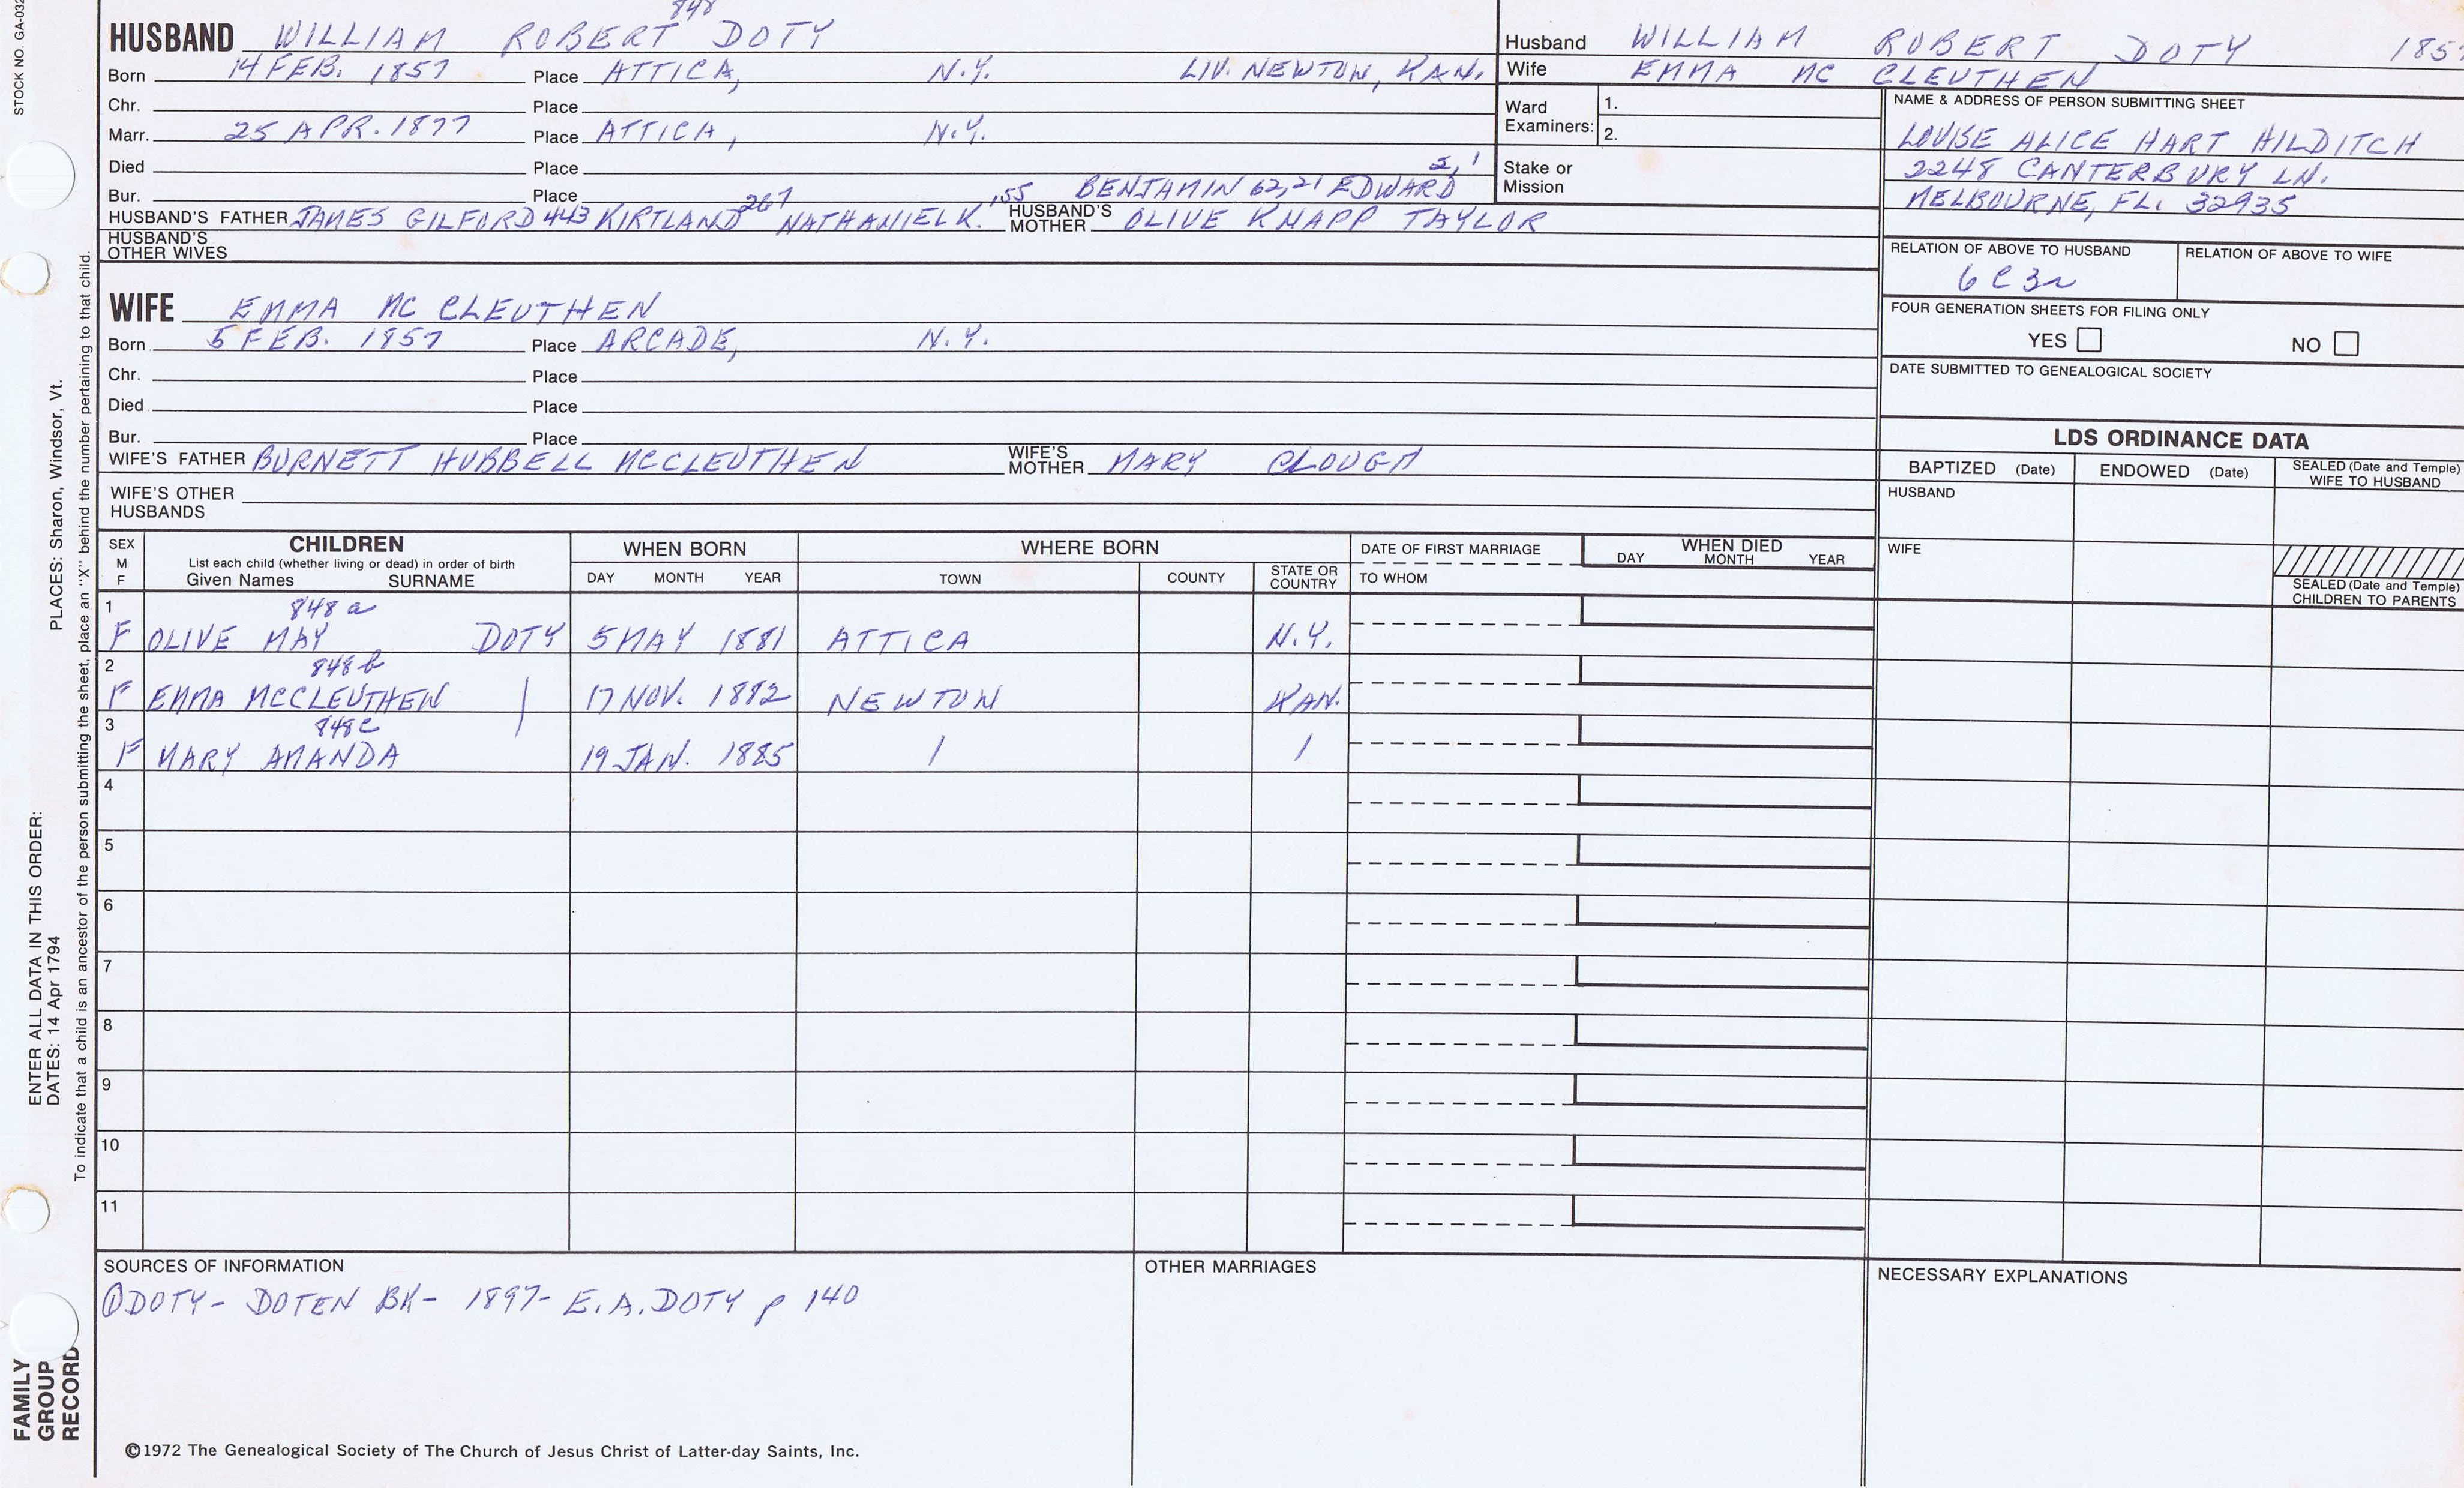 STOCK NO. GA-032
848
HUSBAND WILLIAM ROBERT DOTY
Born 14 FEB. 1857 Place ATTICA, N.Y. LIV. NEWTON, KAN.
Chr. Place
Marr. 25 APR. 1877 Place ATTICA, N.Y.
Died Place
Bur. Place
267 155 BENJAMIN 62, 21 EDWARD 2, 1
HUSBAND'S FATHER JAMES GILFORD 443 KIRTLAND NATHANIEL K. HUSBAND'S MOTHER OLIVE KNAPP TAYLOR
HUSBAND'S OTHER WIVES
WIFE EMMA MC CLEUTHEN
Born 5 FEB. 1857 Place ARCADE, N.Y.
Chr. Place
Died Place
Bur. Place
WIFE'S FATHER BURNETT HUBBELL MCCLEUTHEN WIFE'S MOTHER MARY CLOUGH
WIFE'S OTHER HUSBANDS
Husband WILLIAM ROBERT DOTY 185
Wife EMMA MC CLEUTHEN
Ward Examiners: 1.
2.
Stake or Mission
NAME & ADDRESS OF PERSON SUBMITTING SHEET
LOUISE ALICE HART HILDITCH
2248 CANTERBURY LN.
MELBOURNE, FL. 32935
RELATION OF ABOVE TO HUSBAND RELATION OF ABOVE TO WIFE
6 C 3r
FOUR GENERATION SHEETS FOR FILING ONLY
YES NO
DATE SUBMITTED TO GENEALOGICAL SOCIETY
LDS ORDINANCE DATA
BAPTIZED (Date) ENDOWED (Date) SEALED (Date and Temple) WIFE TO HUSBAND
HUSBAND
WIFE
SEALED (Date and Temple) CHILDREN TO PARENTS
SEX M F CHILDREN WHEN BORN WHERE BORN DATE OF FIRST MARRIAGE WHEN DIED
List each child (whether living or dead) in order of birth
Given Names SURNAME DAY MONTH YEAR TOWN COUNTY STATE OR COUNTRY TO WHOM DAY MONTH YEAR
1 848 a
F OLIVE MAY DOTY 5 MAY 1881 ATTICA N.Y.
2 848 b
F EMMA MCCLEUTHEN | 17 NOV. 1882 NEWTON KAN.
3 848 c
F MARY AMANDA 19 JAN. 1885 | |
4
5
6
7
8
9
10
11
SOURCES OF INFORMATION
① DOTY - DOTEN BK - 1897 - E. A. DOTY p 140
OTHER MARRIAGES
NECESSARY EXPLANATIONS
©1972 The Genealogical Society of The Church of Jesus Christ of Latter-day Saints, Inc.
ENTER ALL DATA IN THIS ORDER:
DATES: 14 Apr 1794 PLACES: Sharon, Windsor, Vt.
To indicate that a child is an ancestor of the person submitting the sheet, place an "X" behind the number pertaining to that child.
FAMILY GROUP RECORD